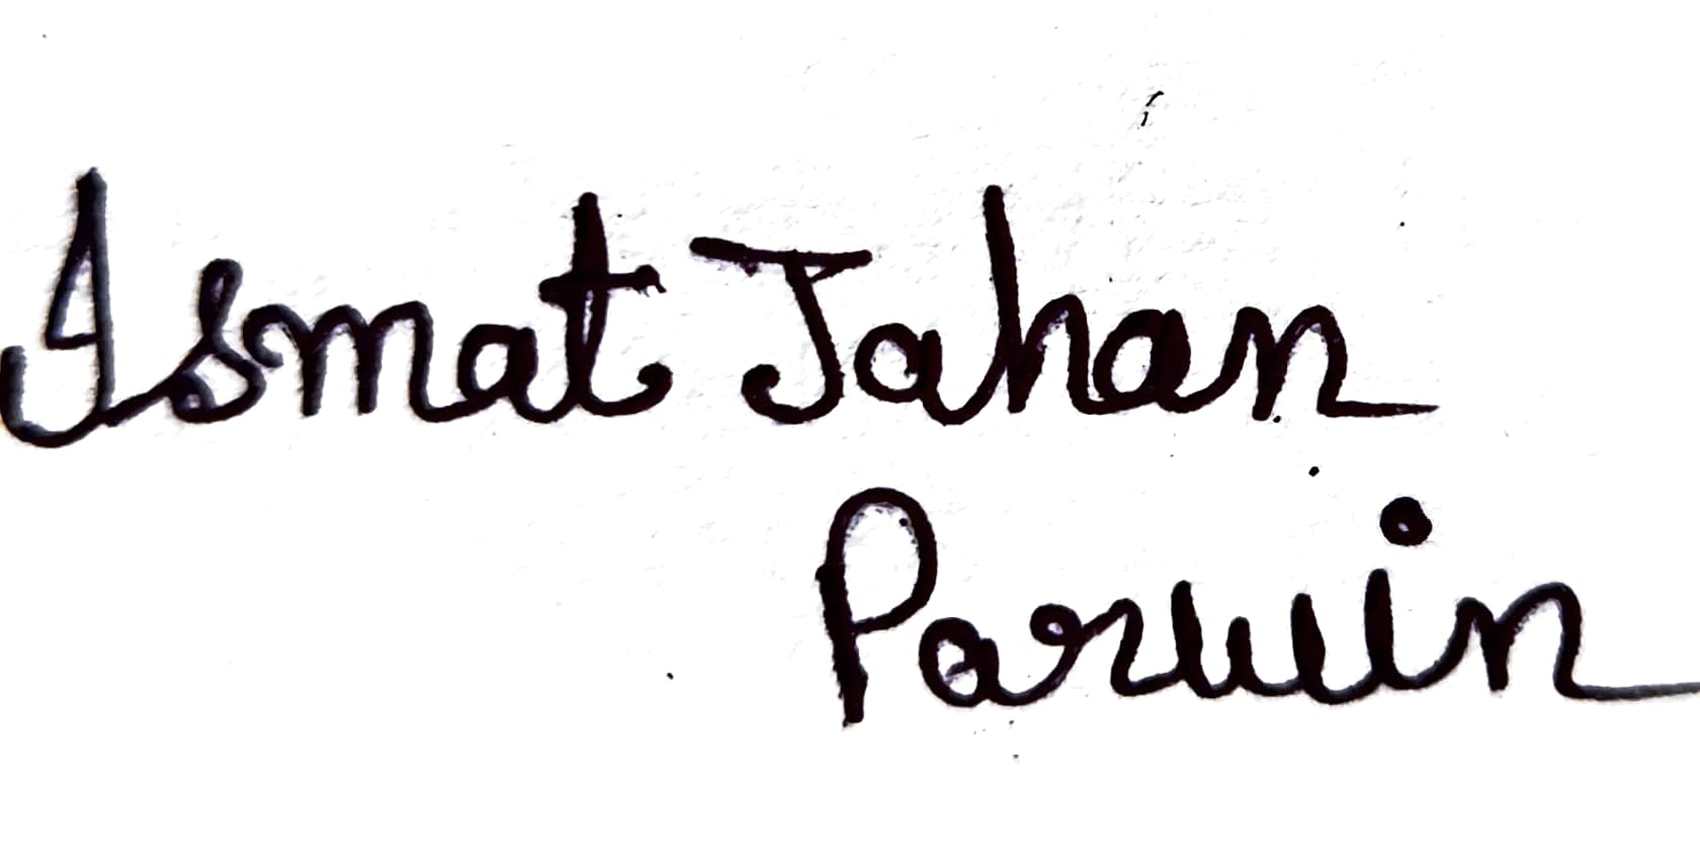 Ismat Jahan
Parwin